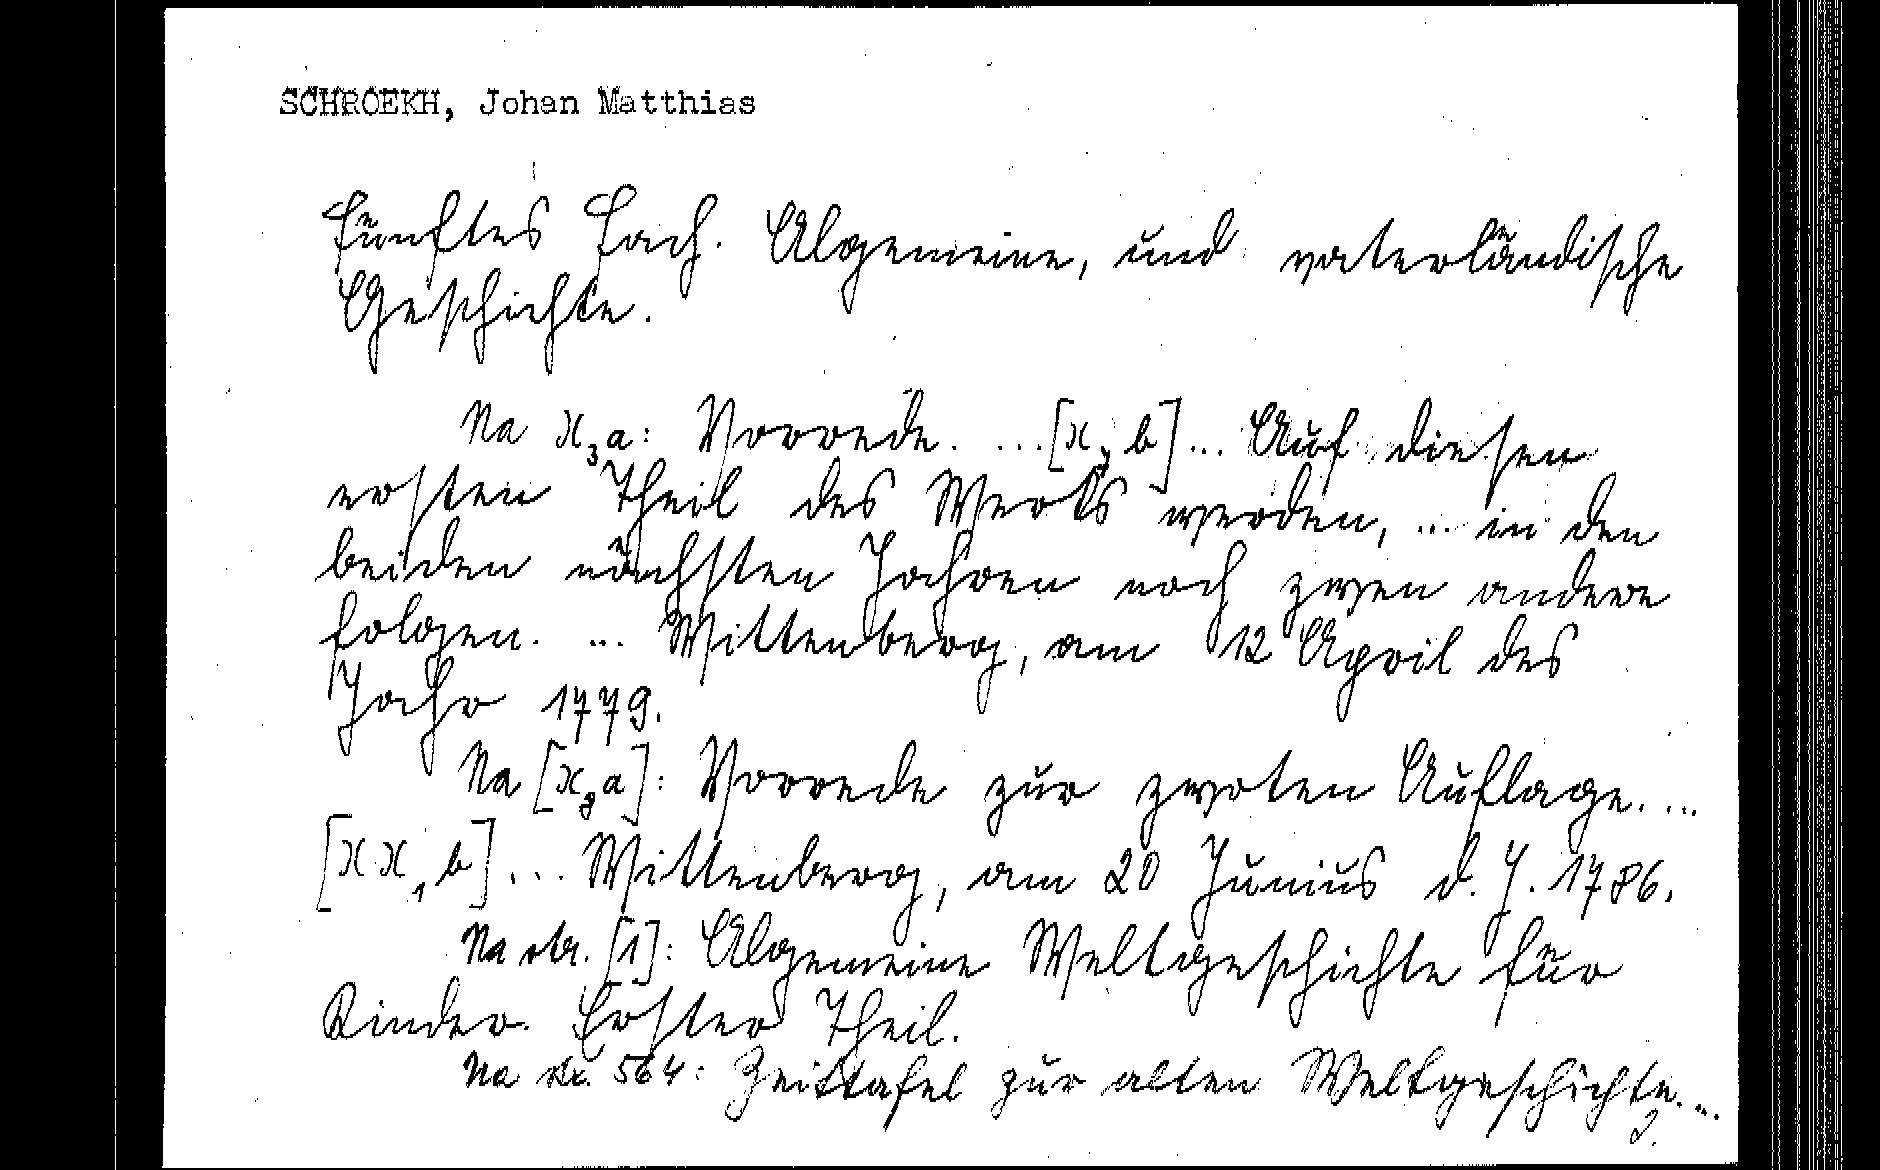 SCHROEKH, Johan Matthias
Fünftes Fach. Algemeine, und vaterländische
Geschichte.
Na x3a: Vorrede. ...[x7b]... Auf diesen
ersten Theil des Werks werden, ... in den
beiden nächsten Jahren noch zwen andere
folgen. ... Wittenberg, am 12 April des
Jahr 1779.
Na [x8a]: Vorrede zur zwoten Auflage. ...
[xx1b]... Wittenberg, am 20 Junius d. J. 1786.
Na str. [1]: Algemeine Weltgeschichte für
Kinder. Erster Theil.
Na str. 564: Zeittafel zur alten Weltgeschichte. ...
2.